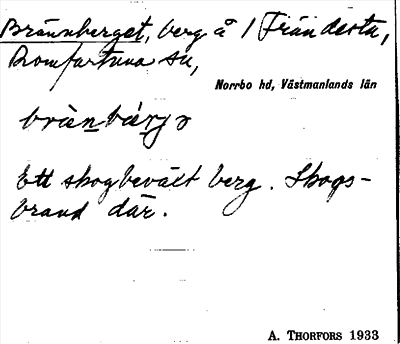 Brännberget, berg å 1 Frändesta,
Romfartuna sn,
Norrbo hd, Västmanlands län
brännbärjə
Ett skogbeväxt berg. Skogs-
brand där.
A. THORFORS 1933